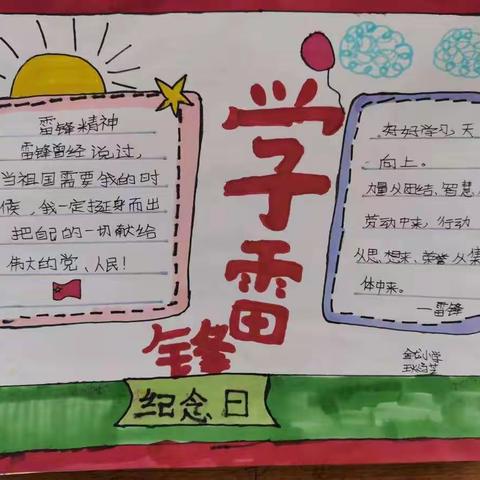 学雷锋
纪念日
雷锋精神
雷锋曾经说过,
当祖国需要我的时
候,我一定挺身而出
把自己的一切献给
伟大的党、人民!
好好学习,天
向上。
力量从团结、智慧
劳动中来,行动
从思想来、荣誉从集
体中来。
—雷锋
小学